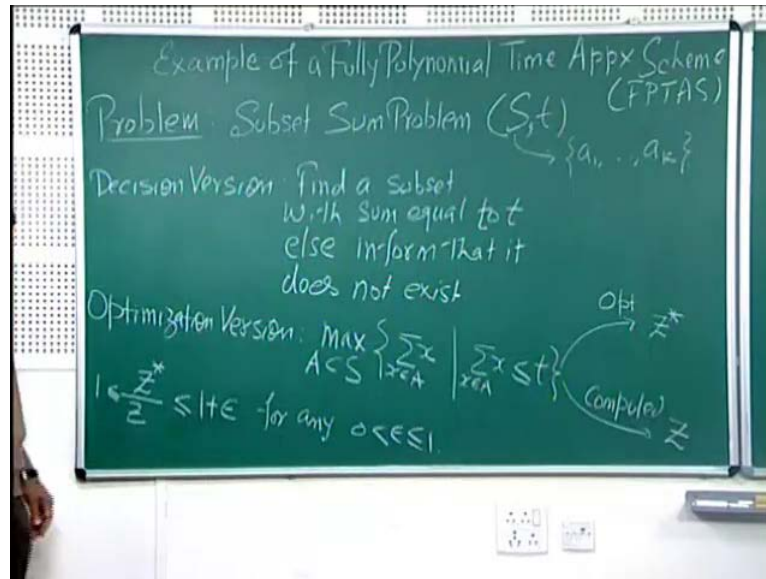 Example of a Fully Polynomial Time Appx Scheme
(FPTAS)
Problem: Subset Sum Problem (S,t)
→ {a₁, ..., aₖ}
Decision Version: Find a subset
with sum equal to t
else inform that it
does not exist
Optimization Version: max_{A⊂S} {∑_{x∈A} x | ∑_{x∈A} x ≤ t}
Opt Z*
Computed Z
1 ≤ Z*/Z ≤ 1+ε for any 0<ε≤1.